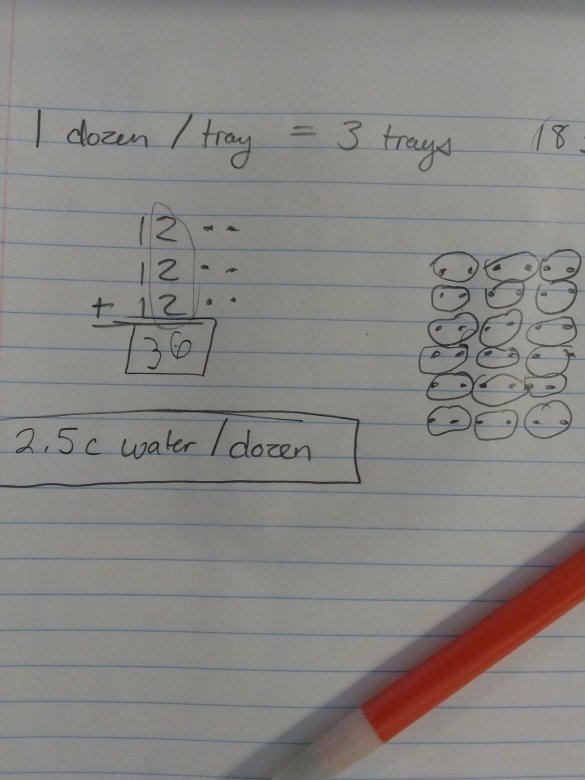 1 dozen / tray = 3 trays 18
12
12
+ 12
36
2.5c water / dozen